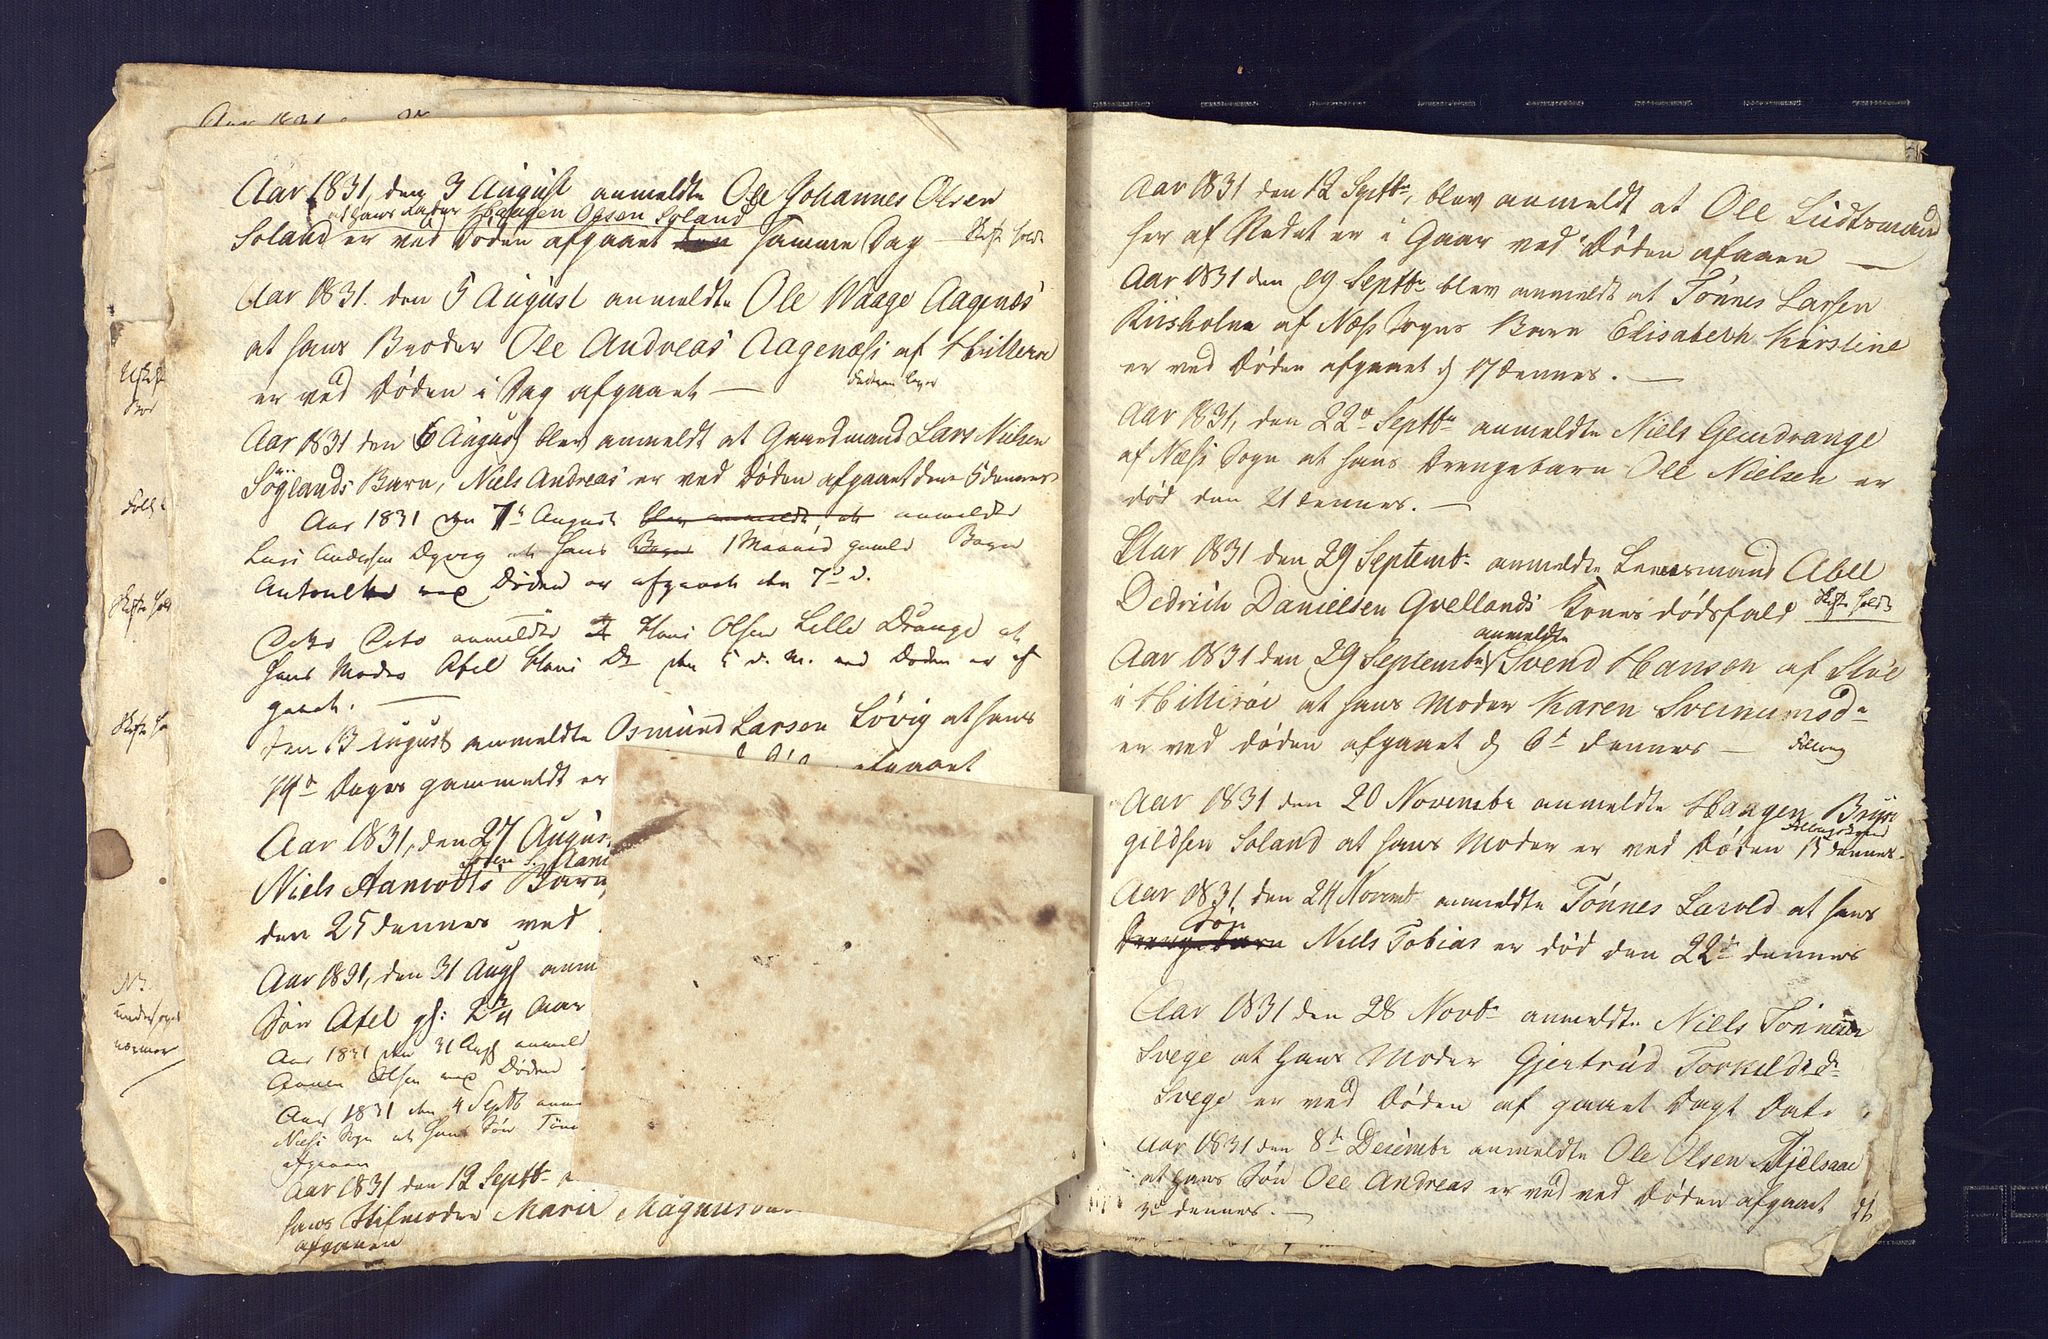 Aar 1831, den 3 August anmeldte Ole Johannes Olsen
at hans Fader Haagen Olsen Soland
Soland er ved Døden afgaaet den samme Dag — Skifte holdt
Aar 1831. den 5 August anmeldte Ole Waage Aagenæs
at hans Broder Ole Andreas Aagenæs af Hitterøe
er ved Døden i Dag afgaaet —
Aar 1831 den 6 August blev anmeldt at Gaardmand Lars Nielsen
Søylands Barn, Niels Andreas er ved Døden afgaaet den 5 dennes
Aar 1831 den 7de August blev anmeldt, at anmeldte
Lars Andersen Dyvig at hans Barn 1 Maaned gamle Barn
ved Døden er afgaaet den 7de d.
Dito Dito anmeldte Hans Olsen Lille Drange at
hans Moder Abel Hans Dr den 5 d. M. ved Døden er af
gaaet. —
den 13 August anmeldte Osmund Larsen Løvig at hans
14de Dages gammeldt er afgaaet
Aar 1831, den 27 August
Niels Aamodts Barn,
den 25 dennes ved
Aar 1831, den 31 Augst anm
Søn Abel gl: 2 3/4 Aar
Aar 1831 den 31 Augst anmeld
Olsen ved Døden
Aar 1831 den 4 Septb anm
Næss Sogn at hans Søn Tønn
afgaaen
Aar 1831 den 12 Septb
hans Stifmoder Marie Magnus
afgaaen
Skifte hold
Skifte ho
No
undersøges
nærmere
Aar 1831 den 12 Septbr, blev anmeldt at Ole Ludtsmand
her af Stedet er i Gaar ved Døden afgaaen —
Aar 1831 den 19 Septbr blev anmeldt at Tønnes Larsen
Riisholm af Næss Sogns Barn Elisabeth Kirstine
er ved Døden afgaaet d 17 dennes. —
Aar 1831, den 22de Septbr anmeldte Niels Glendrange
af Næss Sogn at hans Drengebarn Ole Nielsen er
død den 21 dennes. —
Aar 1831 den 29 Septembr anmeldte Lensmand Abel
Dedrich Danielsen Qvellands Kones dødsfald Skifte holdt
anmeldte
Aar 1831 den 29 Septembr Svend Hansen af Stöe
i Hitterøe at hans Moder Karen Sveinumsdr
er ved døden afgaaet d 6te dennes —
Aar 1831 den 20 Novembr anmeldte Haagen Bryn
gildsen Soland at hans Moder er ved Døden 15 dennes.
Aar 1831, den 24 Novemb anmeldte Tønnes Larvold at hans
Søn
Drengebarn Niels Tobias er død den 22de dennes
Aar 1831 den 28 Novbr anmeldte Niels Tønnesen
Svege at hans Moder Gjertrud Torkildsdr
Svege er ved Døden af gaaet Dags Dato
Aar 1831 den 8de Decembr anmeldte Ole Olsen Fjelsaae
at hans Søn Ole Andreas er ved ved Døden afgaaet d
3de dennes. —